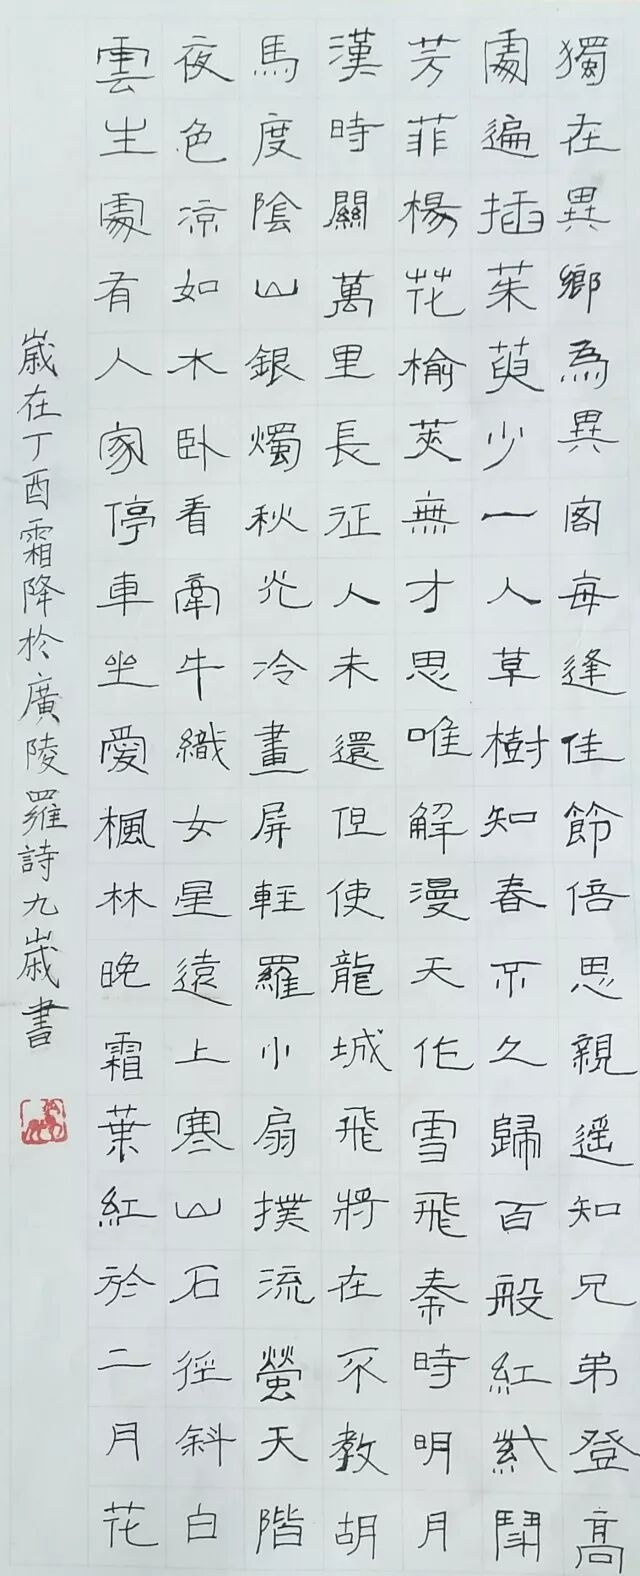 獨在異鄉為異客每逢佳節倍思親遥知兄弟登高
處遍插茱萸少一人草樹知春不久歸百般紅紫鬥
芳菲楊花榆莢無才思唯解漫天作雪飛秦時明月
漢時關萬里長征人未還但使龍城飛將在不教胡
馬度陰山銀燭秋光冷畫屏輕羅小扇撲流螢天階
夜色涼如水卧看牽牛織女星遠上寒山石徑斜白
雲生處有人家停車坐愛楓林晚霜葉紅於二月花
歲在丁酉霜降於廣陵羅詩九歲書